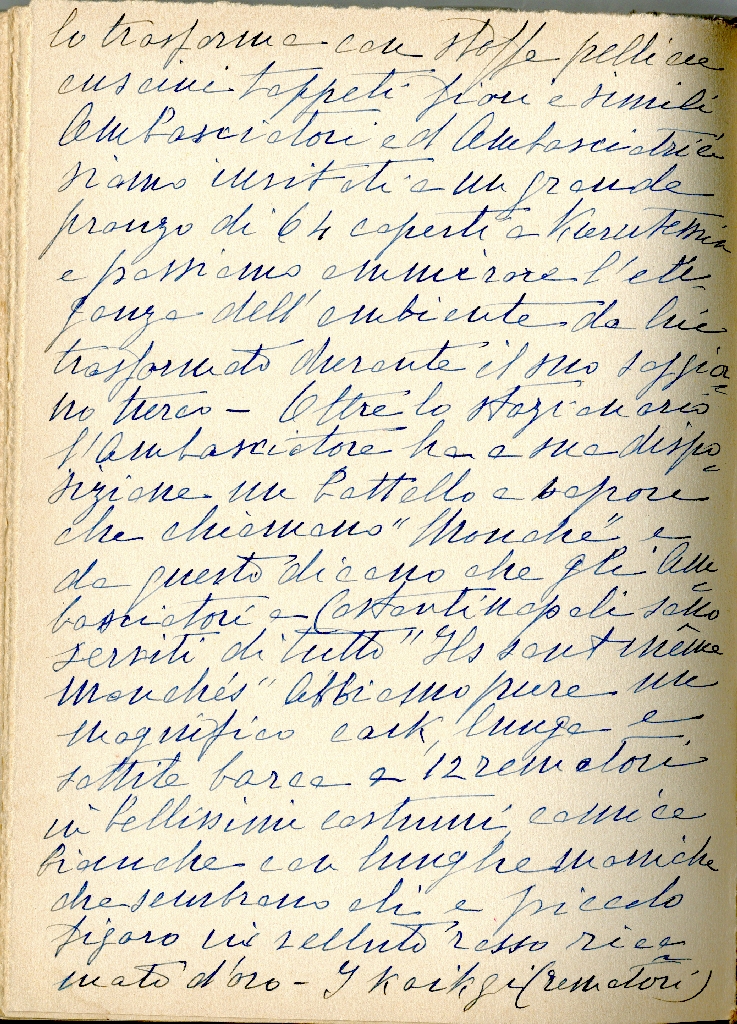 lo trasforma con stoffe pellicce
cuscini tappeti fiori e simili
Ambasciatori ed Ambasciatrici
siamo invitati a un grande
pranzo di 64 coperti a
e possiamo ammirare l'ele
ganza dell'ambiente da lui
trasformato durante il suo soggior
no turco - Oltre lo stazionario
l'Ambasciatore ha a sua dispo
sizione un battello a vapore
che chiamano "Mouche" e
da questo dicono che gli Am
basciatori a Costantinopoli sono
serviti di tutto "Ils sont même
mouchés" Abbiamo pure un
magnifico caik, lunga e
sottile barca a 12 rematori
in bellissimi costumi, camice
bianche con lunghe maniche
che sembrano ali e piccolo
figaro in velluto rosso rica
mato d'oro - I kaikgi (rematori)